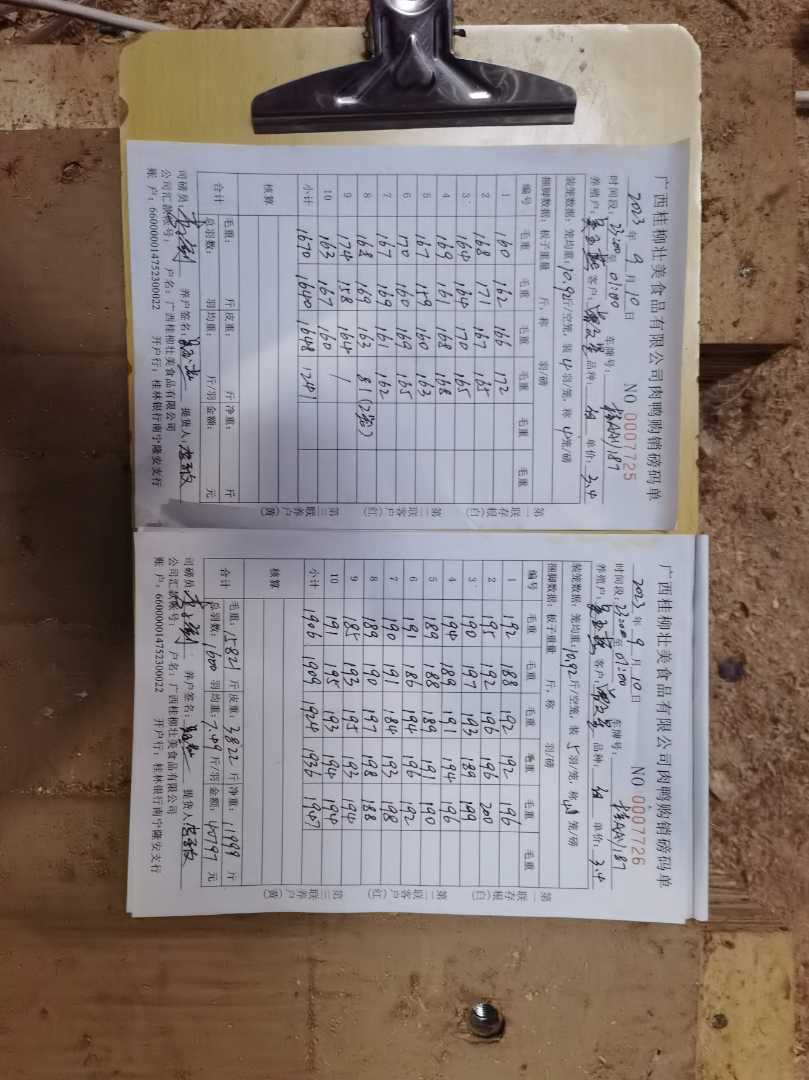 广西桂柳壮美食品有限公司肉鸭购销磅码单
NO 0007725
2023 年 9 月 10 日
时间段: 23:00 至 01:00 车牌号: 桂AAV187
养殖户: 客户: 品种: 单价: 3.4
装笼数据: 笼均重: 10.92斤/空笼, 装 4 羽/笼, 称 4 笼/磅
捆脚数据: 板子重量 斤, 称 羽/磅
编号 毛重 毛重 毛重 毛重 毛重 毛重
1 160 162 166 172
2 168 171 167 165
3 164 164 170 165
4 169 161 168 168
5 167 159 160 163
6 170 160 169 165
7 167 169 161 162
8 168 169 163 81(2笼)
9 174 158 164 /
10 163 167 160
小计 1670 1640 1648 1241
核算
合计 毛重: 斤 皮重: 斤 净重: 斤
总羽数: 羽均重: 斤/羽 金额: 元
司磅员: 养户签名: 提货人:
公司汇款账号: 户名: 广西桂柳壮美食品有限公司
账户: 660000014752300022 开户行: 桂林银行南宁隆安支行
第一联存根(白) 第二联客户(红) 第三联养户(黄)
广西桂柳壮美食品有限公司肉鸭购销磅码单
NO 0007726
2023 年 9 月 10 日
时间段: 23:00 至 01:00 车牌号: 桂AAV187
养殖户: 客户: 品种: 单价: 3.4
装笼数据: 笼均重: 10.92斤/空笼, 装 5 羽/笼, 称 4 笼/磅
捆脚数据: 板子重量 斤, 称 羽/磅
编号 毛重 毛重 毛重 毛重 毛重 毛重
1 192 188 192 192 196
2 195 192 196 196 200
3 190 197 193 189 199
4 194 189 191 194 196
5 189 188 189 191 190
6 191 186 194 196 192
7 190 191 184 193 198
8 189 190 197 198 188
9 185 193 195 193 194
10 191 195 193 194 194
小计 1906 1909 1924 1936 1947
核算
合计 毛重: 15821 斤 皮重: 3822 斤 净重: 11999 斤
总羽数: 1600 羽均重: 7.49 斤/羽 金额: 40797 元
司磅员: 养户签名: 提货人:
公司汇款账号: 户名: 广西桂柳壮美食品有限公司
账户: 660000014752300022 开户行: 桂林银行南宁隆安支行
第一联存根(白) 第二联客户(红) 第三联养户(黄)